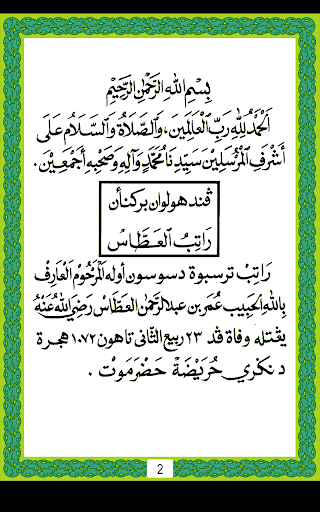 بِسْمِ اللهِ الرَّحْمٰنِ الرَّحِيْمِ
اَلْحَمْدُ لِلّٰهِ رَبِّ الْعَالَمِيْنَ، وَالصَّلَاةُ وَالسَّلَامُ عَلَى
أَشْرَفِ الْمُرْسَلِيْنَ سَيِّدِنَا مُحَمَّدٍ وَآلِهِ وَصَحْبِهِ أَجْمَعِيْنَ.
ڤندهولوان بركنأن
رَاتِبُ الْعَطَّاسْ
رَاتِبْ ترسبوة دسوسون أوله اَلْمَرْحُوْم اَلْعَارِفْ
بِاللهِ الْحَبِيب عُمَر بن عبدالرَّحْمٰن الْعَطَّاس رَضِيَ اللهُ عَنْهُ
يڠتله وفاة ڤد ٢٣ ربيع الثّانى تاهون ١٠٧٢ هجرة
دنكري حُرَيْضَة حَضْرَمَوْتْ.
2